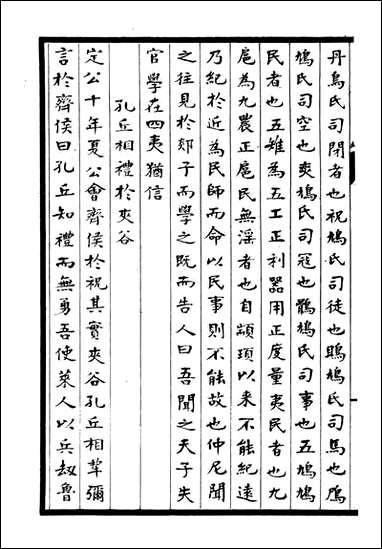 丹鳥氏司閉者也祝鳩氏司徒也鴡鳩氏司馬也鳲
鳩氏司空也爽鳩氏司寇也鶻鳩氏司事也五鳩鳩
民者也五雉為五工正利器用正度量夷民者也九
扈為九農正扈民無淫者也自顓頊以來不能紀遠
乃紀於近為民師而命以民事則不能故也仲尼聞
之往見於郯子而學之既而告人曰吾聞之天子失
官學在四夷猶信
孔丘相禮於夾谷
定公十年夏公會齊侯於祝其實夾谷孔丘相犂彌
言於齊侯曰孔丘知禮而無勇吾使萊人以兵劫魯